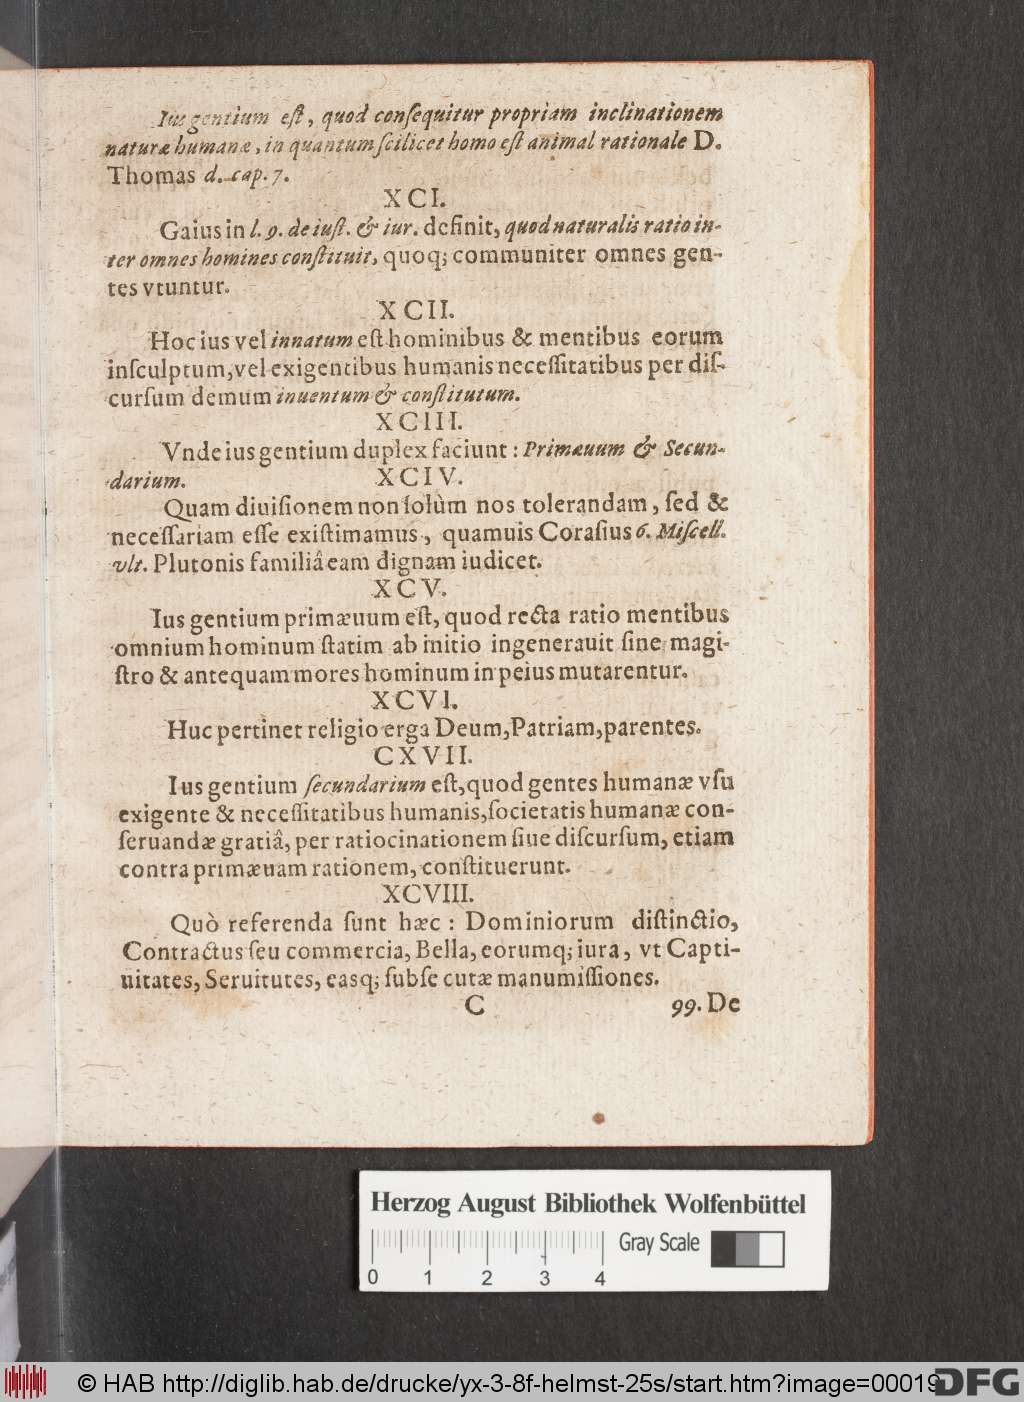 Ius gentium eſt, quod conſequitur propriam inclinationem
naturæ humanæ, in quantum ſcilicet homo eſt animal rationale D.
Thomas d. cap. 7.
XCI.
Gaius in l. 9. de iuſt. & iur. definit, quod naturalis ratio in-
ter omnes homines conſtituit, quoq; communiter omnes gen-
tes vtuntur.
XCII.
Hoc ius vel innatum eſt hominibus & mentibus eorum
inſculptum, vel exigentibus humanis neceſſitatibus per diſ-
curſum demum inuentum & conſtitutum.
XCIII.
Vnde ius gentium duplex faciunt: Primæuum & Secun-
darium.
XCIV.
Quam diuiſionem non ſolùm nos tolerandam, ſed &
neceſſariam eſſe exiſtimamus, quamuis Coraſius 6. Miſcell.
vlt. Plutonis familiâ eam dignam iudicet.
XCV.
Ius gentium primæuum eſt, quod recta ratio mentibus
omnium hominum ſtatim ab initio ingenerauit ſine magi-
ſtro & antequam mores hominum in peius mutarentur.
XCVI.
Huc pertinet religio erga Deum, Patriam, parentes.
CXVII.
Ius gentium ſecundarium eſt, quod gentes humanæ vſu
exigente & neceſſitatibus humanis, ſocietatis humanæ con-
ſeruandæ gratiâ, per ratiocinationem ſiue diſcurſum, etiam
contra primæuam rationem, conſtituerunt.
XCVIII.
Quò referenda ſunt hæc: Dominiorum diſtinctio,
Contractus ſeu commercia, Bella, eorumq; iura, vt Capti-
uitates, Seruitutes, easq; ſubſe cutæ manumiſſiones.
C 99. De
Herzog August Bibliothek Wolfenbüttel
Gray Scale
0 1 2 3 4
© HAB http://diglib.hab.de/drucke/yx-3-8f-helmst-25s/start.htm?image=00019
DFG